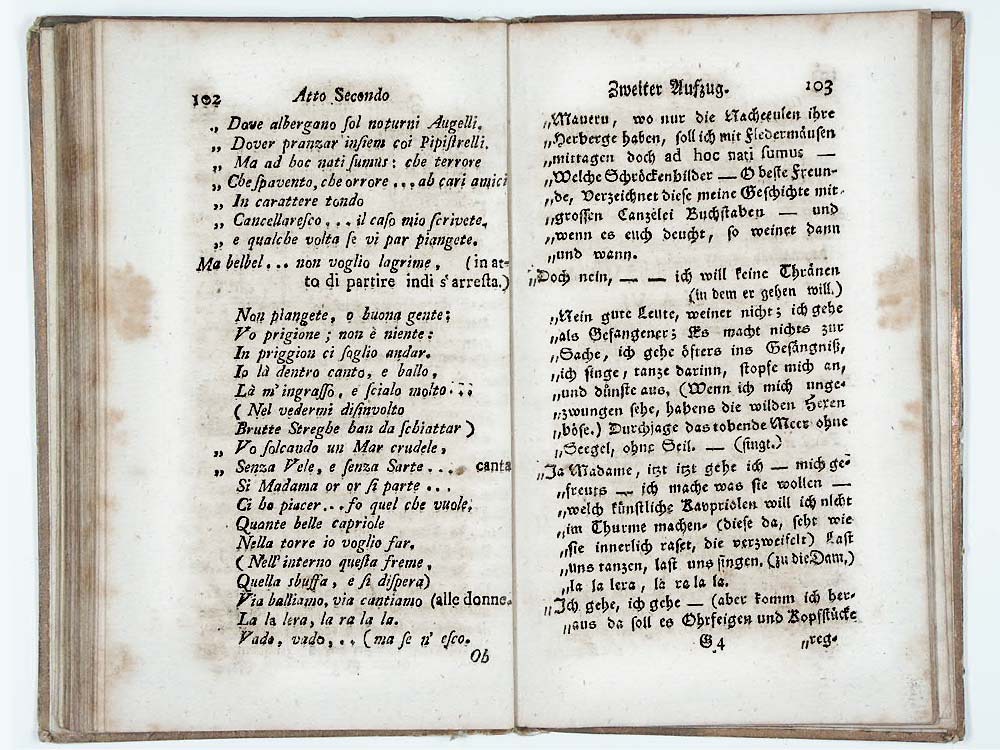 102 Atto Secondo
„ Dove albergano sol noturni Augelli.
„ Dover pranzar insiem coi Pipistrelli.
„ Ma ad hoc nati sumus: che terrore
„ Che spavento, che orrore ... ab cari amici
„ In carattere tondo
„ Cancellaresco ... il caso mio scrivete.
„ e qualche volta se vi par piangete.
Ma belbel ... non voglio lagrime, (in at-
to di partire indi s'arresta.)
Non piangete, o buona gente;
Vo prigione; non è niente:
In priggion ci soglio andar.
Io là dentro canto, e ballo,
Là m'ingrasso, e scialo molto ...
( Nel vedermi disinvolto
Brutte Streghe han da schiattar )
„ Vo solcando un Mar crudele,
„ Senza Vele, e senza Sarte .... canta
Si Madama or or si parte ...
Ci ho piacer... fo quel che vuole,
Quante belle capriole
Nella torre io voglio far.
( Nell' interno questa freme,
Quella sbuffa, e si dispera)
Via balliamo, via cantiamo (alle donne.
La la lera, la ra la la.
Vado, vado, .. ( ma se n' esco.
Ob
Zweiter Aufzug. 103
„Mauern, wo nur die Nachteulen ihre
„Herberge haben, soll ich mit Fledermäusen
„mittagen doch ad hoc nati sumus —
„Welche Schröckenbilder — O beste Freun-
„de, Verzeichnet diese meine Geschichte mit-
„grossen Canzelei Buchstaben — und
„wenn es euch deucht, so weinet dann
„und wann.
„Doch nein, — — ich will keine Thränen
(in dem er gehen will.)
„Nein gute Leute, weiner nicht; ich gehe
„als Gefangener; Es macht nichts zur
„Sache, ich gehe öfters ins Gefängniß,
„ich singe, tanze darinn, stopfe mich an,
„und dünste aus, (Wenn ich mich unge-
„zwungen sehe, habens die wilden Hexen
„böse.) Durchjage das tobende Meer ohne
„Seegel, ohne Seil. — (singt.)
„Ja Madame, itzt itzt gehe ich — mich ge-
„freuts — ich mache was sie wollen —
„welch künstliche Kappriolen will ich nicht
„im Thurme machen. (diese da, seht wie
„sie innerlich raset, die verzweifelt) Last
„uns tanzen, last uns singen. (zu die Dam.)
„la la lera, la ra la la.
„Ich gehe, ich gehe — (aber komm ich her-
„aus da soll es Ohrfeigen und Kopfstücke
G 4 „reg-